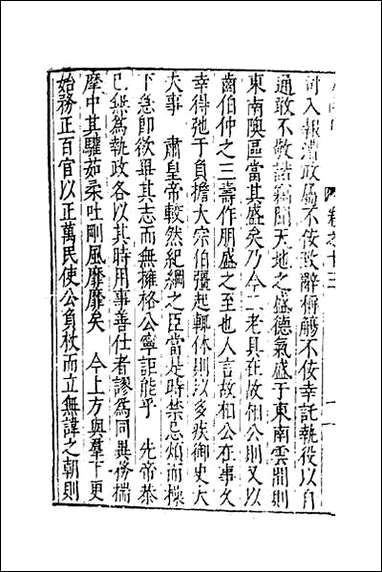 卷之十三
司入報瀆政屬不佞致辭稱觴不佞幸託執役以自
通敢不敬諾竊聞天地之盛德氣盛于東南雲間則
東南隩區當其盛矣乃今二老具在故相公則又以
齒伯仲之三壽作朋盛之至也人言故相公在事久
幸得弛于負擔大宗伯彊起輒休則以多疾御史大
夫事　肅皇帝較然紀綱之臣當是時禁忌煩而操
下急卽欲畢其志而無擁格公寧詎能乎　先帝恭
己無爲執政各以其時用事善仕者謬爲同異務揣
摩中其驩茹柔吐剛風靡靡矣　今上方與羣下更
始務正百官以正萬民使公負杖而立無諱之朝則